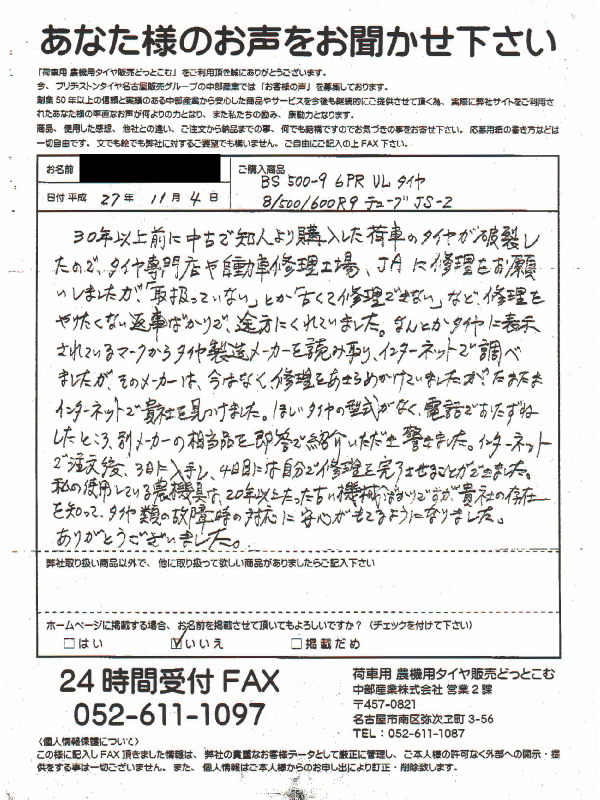 あなた様のお声をお聞かせ下さい
「荷車用 農機用タイヤ販売どっとこむ」をご利用頂き誠にありがとうございます。
今、ブリヂストンタイヤ名古屋販売グループの中部産業では「お客様の声」を募集しております。
創業50年以上の信頼と実績のある中部産業から安心した商品やサービスを今後も継続的にご提供させて頂く為、実際に弊社サイトをご利用さ
れたあなた様の率直なお声が何よりの力となり、また私たちの励み、原動力となります。
商品、使用した感想、他社との違い、ご注文から納品までの事、何でも結構ですのでお気づきの事をお寄せ下さい。応募用紙の書き方などは
一切自由です。文でも絵でも弊社に対するご要望でも構いません。ご自由にご記入の上FAX下さい。
お名前
ご購入商品
BS 500-9 6PR ULタイヤ
日付 平成 27年 11月 4日
8/500/600R9 チューブ JS-2
30年以上前に中古で知人より購入した荷車のタイヤが破裂し
たので、タイヤ専門店や自動車修理工場、JAに修理をお願
いしましたが「取扱っていない」とか「古くて修理できない」など、修理を
やりたくない返事ばかりで、途方にくれていました。なんとかタイヤに表示
されているマークからタイヤ製造メーカーを読み取り、インターネットで調べ
ましたが、そのメーカーは、今はなく修理をあきらめかけていましたが、たまたま
インターネットで貴社を見つけました。ほしいタイヤの型式がなく、電話でおたずね
したところ、別メーカーの相当品を即答で紹介いただき驚きました。インターネット
で注文後、3日に入手し、4日目には自分で修理を完了させることができました。
私の使用している農機具は、20年以上たった古い機械ばかりですが、貴社の存在
を知って、タイヤ類の故障時の対応に安心がもてるようになりました。
ありがとうございました。
弊社取り扱い商品以外で、他に取り扱って欲しい商品がありましたらご記入下さい
ホームページに掲載する場合、お名前を掲載させて頂いてもよろしいですか？（チェックを付けて下さい）
□はい ☑いいえ □掲載だめ
24時間受付 FAX
052-611-1097
荷車用 農機用タイヤ販売どっとこむ
中部産業株式会社 営業2課
〒457-0821
名古屋市南区弥次ヱ町 3-56
TEL：052-611-1087
〈個人情報保護について〉
この様に記入しFAX頂きました情報は、弊社の貴重なお客様データとして厳正に管理し、ご本人様の許可なく外部への開示・提
供をする事は一切ございません。また、個人情報はご本人様からのお申し出により訂正・削除致します。